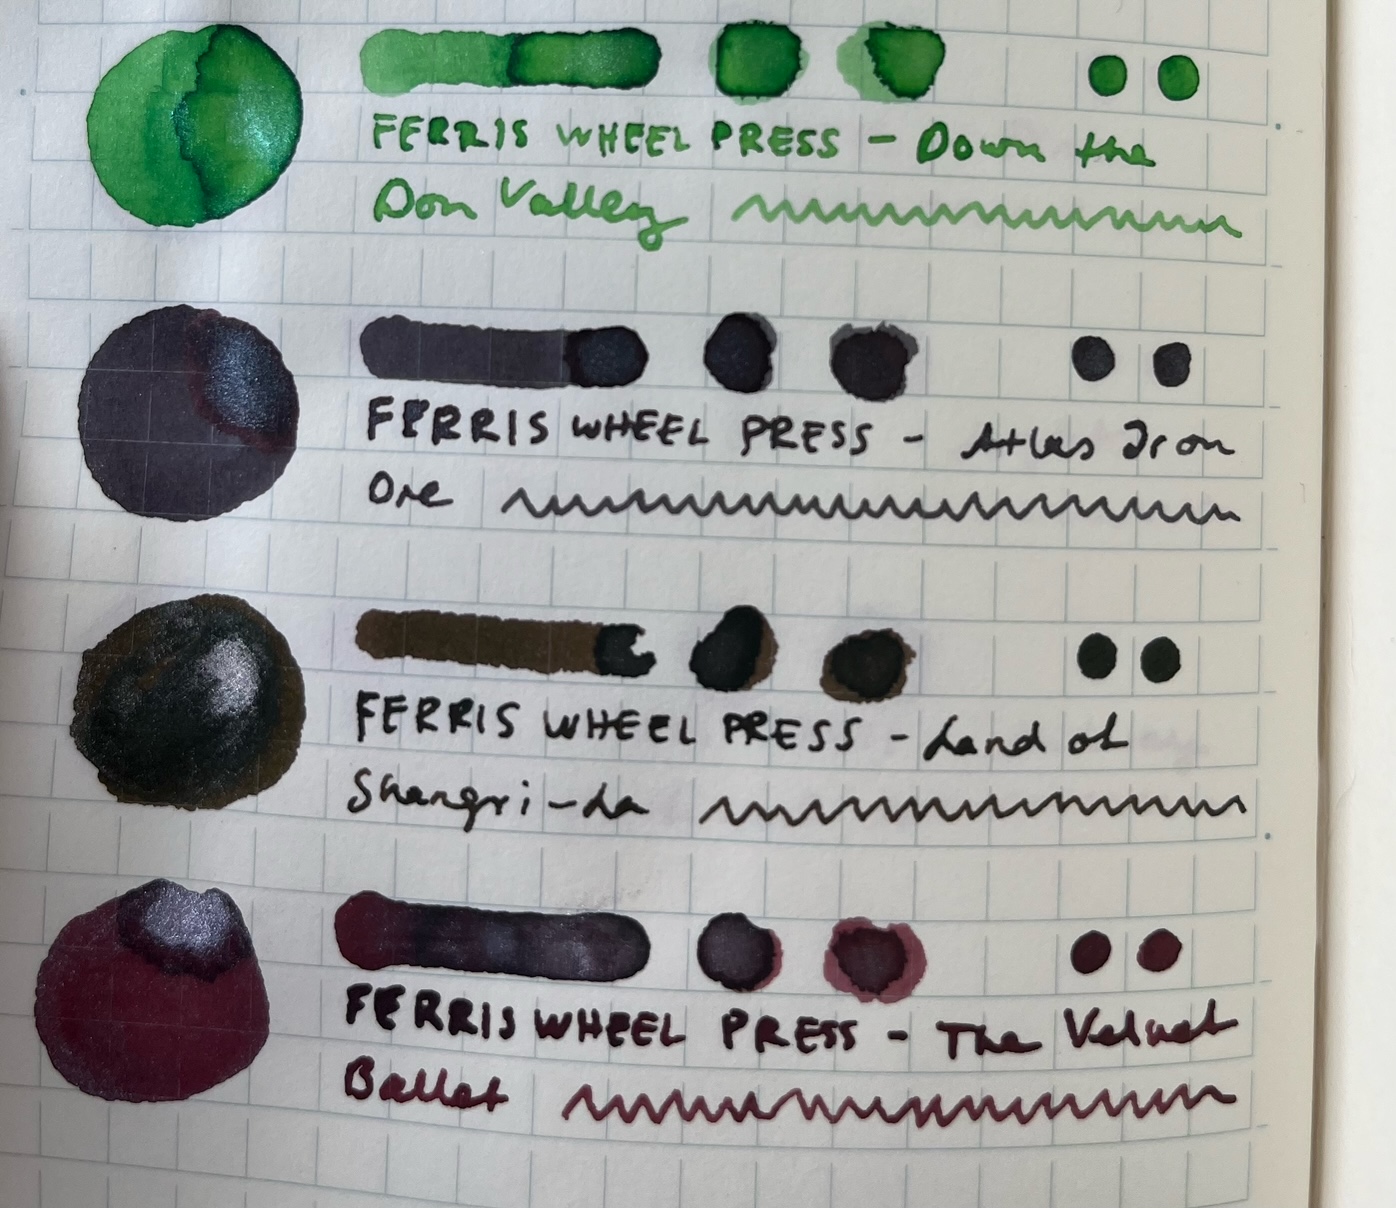 FERRIS WHEEL PRESS - Down the
Don Valley
FERRIS WHEEL PRESS - Atlas Iron
Ore
FERRIS WHEEL PRESS - Land of
Shangri-La
FERRIS WHEEL PRESS - The Velvet
Ballet